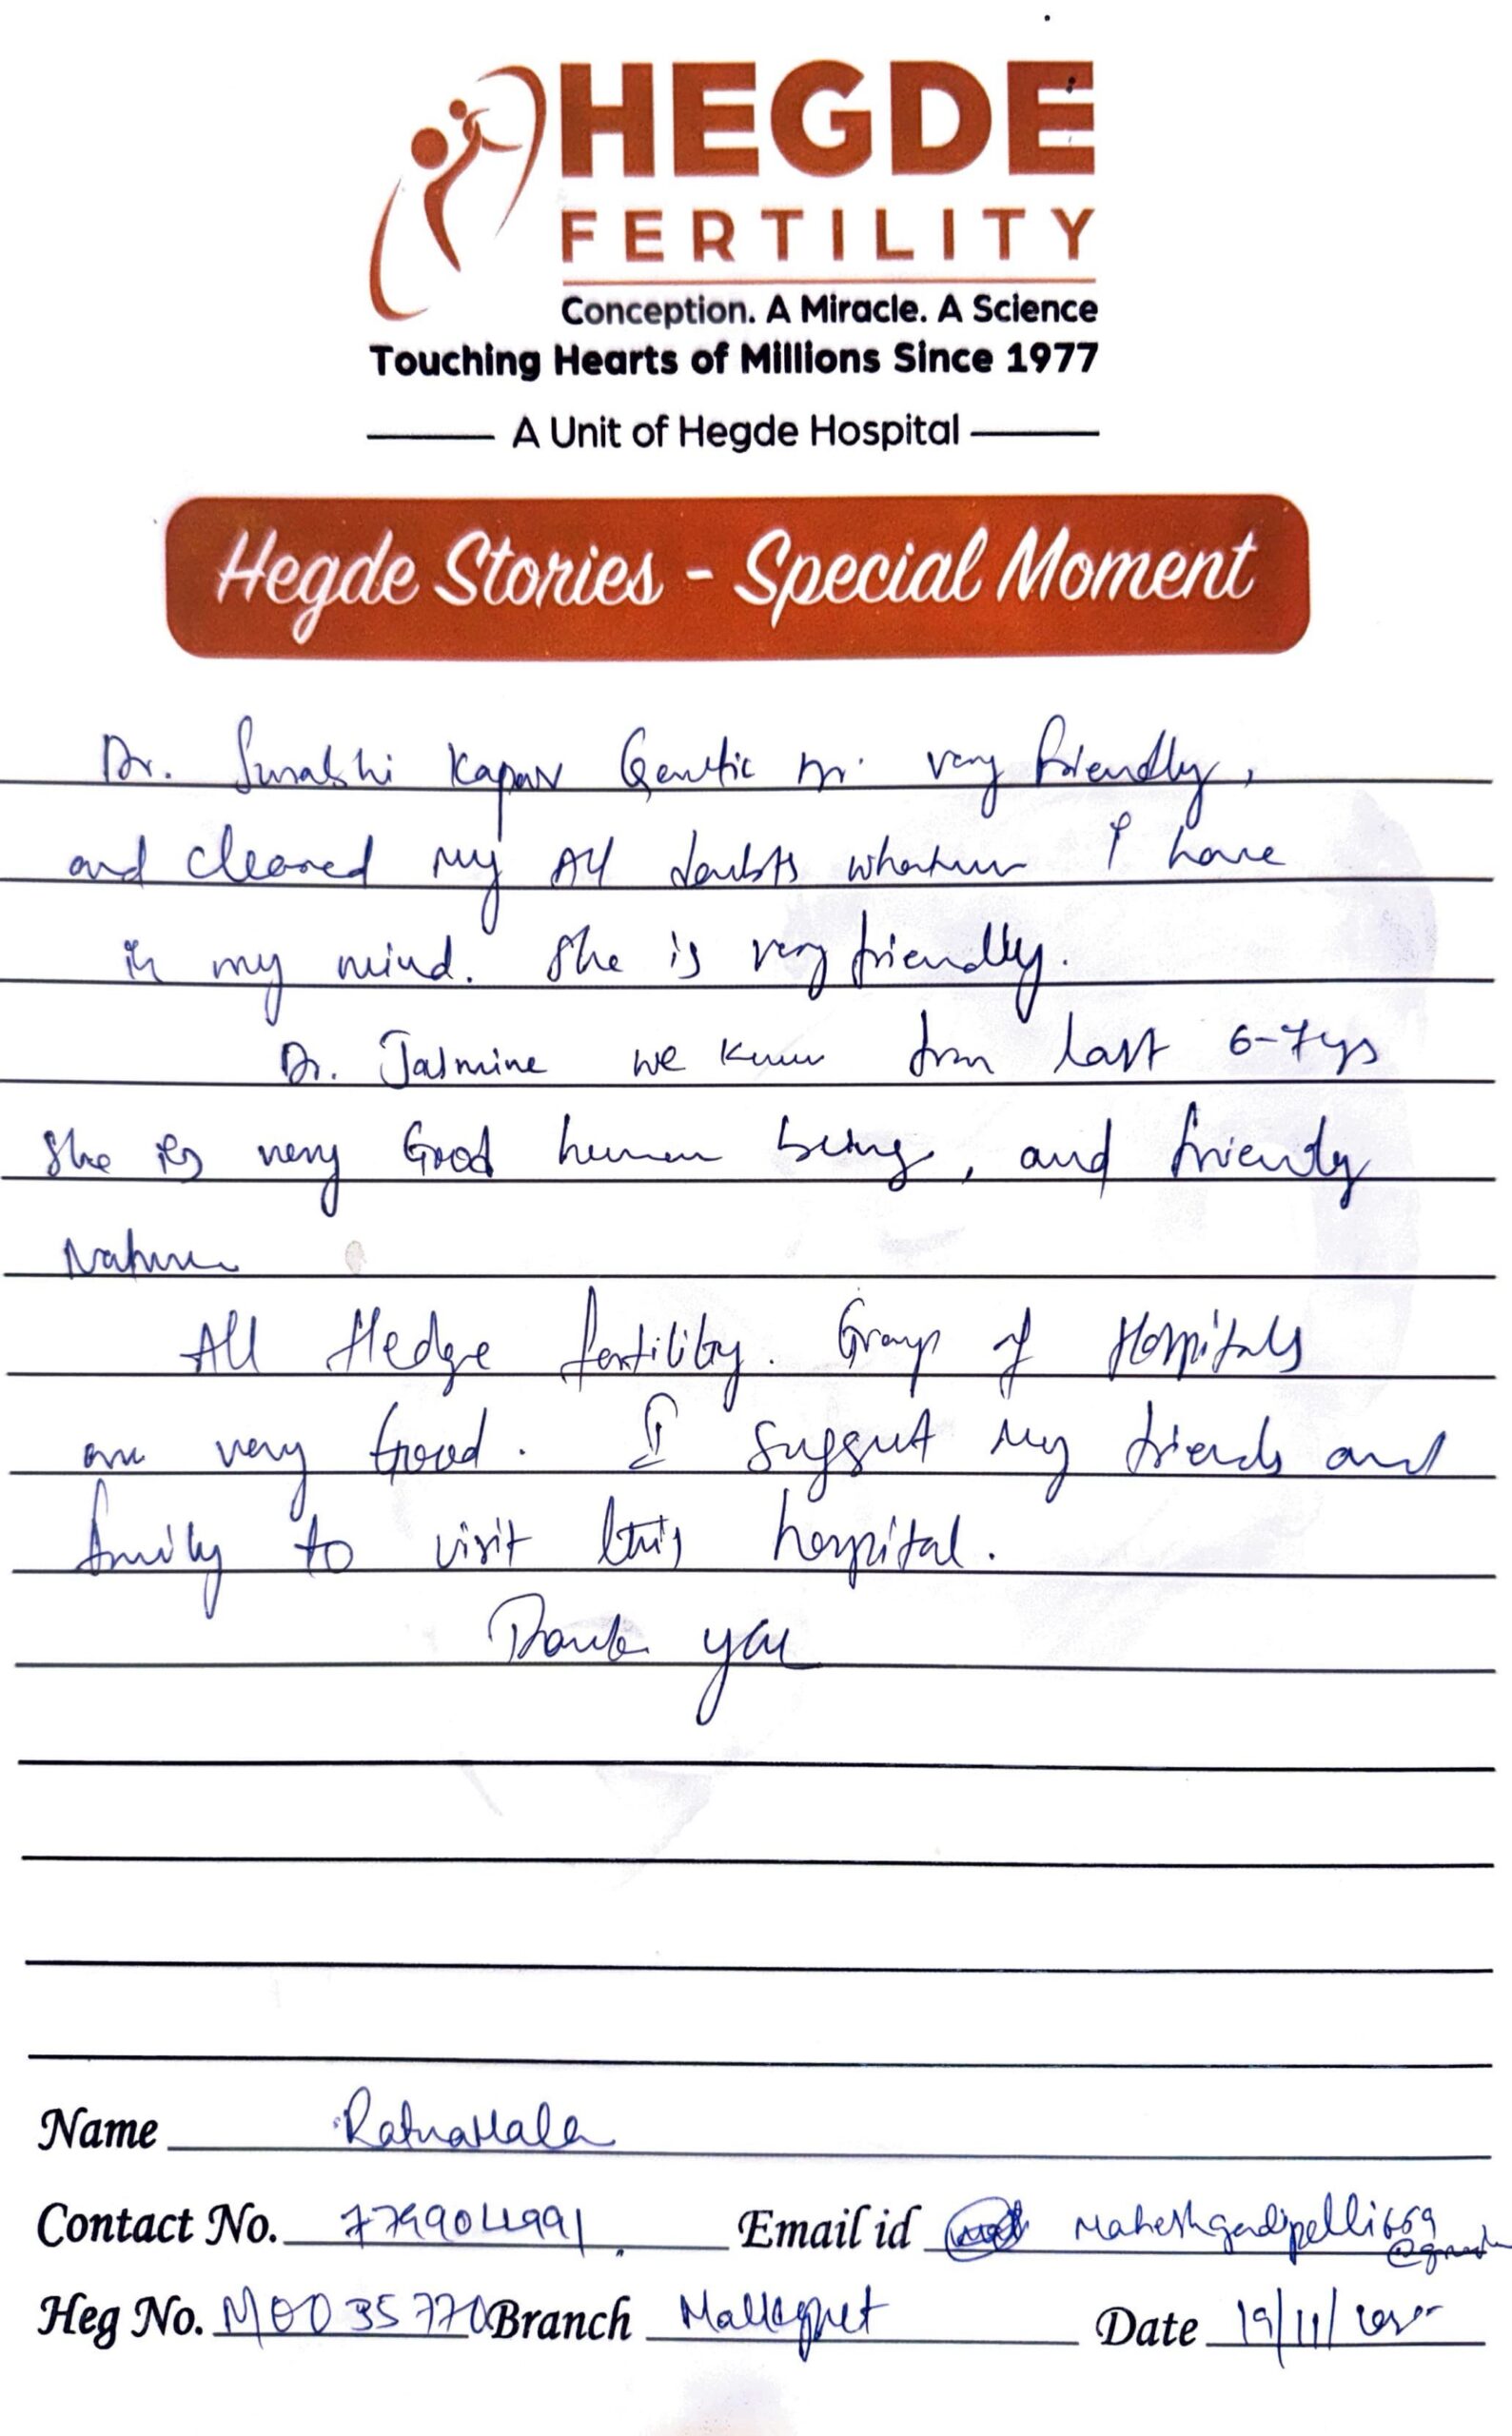 HEGDE
FERTILITY
Conception. A Miracle. A Science
Touching Hearts of Millions Since 1977
A Unit of Hegde Hospital
Hegde Stories - Special Moment
Dr. Surabhi Kapoor Genetic Dr. very friendly,
and cleared my All doubts whatever I have
in my mind. She is very friendly.
Dr. Jasmine we know from last 6-7 yrs
She is very Good human being, and friendly
Nature
All Hedge fertility. Group of Hospitals
are very Good. I suggest my friends and
family to visit this hospital.
Thank you
Name RatnaMala
Contact No. Email id
Heg No. M0035770 Branch Date 19/11/